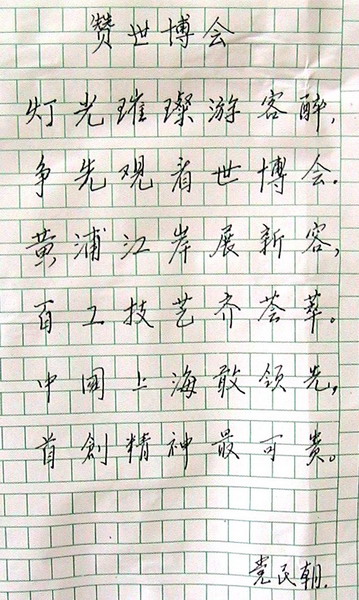 赞世博会
灯光璀璨游客醉,
争先观看世博会.
黄浦江岸展新容,
百工技艺齐荟萃。
中國上海敢领先,
首創精神最可贵。
党民朝.